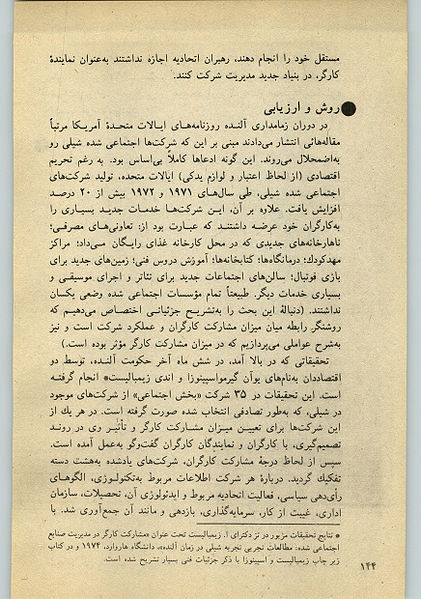 مستقل خود را انجام دهند، رهبران اتحادیه اجازه نداشتند به‌عنوان نمایندهٔ
کارگر، در بنیاد جدید مدیریت شرکت کنند.
● روش و ارزیابی
در دوران زمامداری آلنده روزنامه‌های ایالات متحدهٔ آمریکا مرتباً
مقاله‌هائی انتشار می‌دادند مبنی بر این که شرکت‌ها اجتماعی شده شیلی رو
به‌اضمحلال می‌روند. این گونه ادعاها کاملاً بی‌اساس بود. به رغم تحریم
اقتصادی (از لحاظ اعتبار و لوازم یدکی) ایالات متحده، تولید شرکت‌های
اجتماعی شده شیلی، طی سال‌های ۱۹۷۱ و ۱۹۷۲ بیش از ۲۰ درصد
افزایش یافت. علاوه بر آن، این شرکت‌ها خدمات جدید بسیاری را
به‌کارگران خود عرضه داشتند که عبارت بود از: تعاونی‌های مصرفی؛
ناهارخانه‌های جدیدی که در محل کارخانه غذای رایگان می‌داد؛ مراکز
مهدکودك؛ درمانگاه‌ها؛ کتابخانه‌ها؛ آموزش دروس فنی؛ زمین‌های جدید برای
بازی فوتبال؛ سالن‌های اجتماعات جدید برای تئاتر و اجرای موسیقی و
بسیاری خدمات دیگر. طبیعتاً تمام مؤسسات اجتماعی شده وضعی یکسان
نداشتند. (دنبالهٔ این بحث را به‌تشریح جزئیاتی اختصاص می‌دهیم که
روشنگر رابطه میان میزان مشارکت کارگران و عملکرد شرکت است و نیز
به‌شرح عواملی می‌پردازیم که در میزان مشارکت کارگر مؤثر بوده است.)
تحقیقاتی که در بالا آمد، در شش ماه آخر حکومت آلنده، توسط دو
اقتصاددان به‌نام‌های یوآن گیرمواسپینوزا و اندی زیمبالیست* انجام گرفته
است. این تحقیقات در ۳۵ شرکت «بخش اجتماعی» از شرکت‌های موجود
در شیلی، که به‌طور تصادفی انتخاب شده صورت گرفته است. در هر یك از
این شرکت‌ها برای تعیین میزان مشارکت کارگر و تأثیر وی در روند
تصمیم‌گیری، با کارگران و نمایندگان کارگران گفت‌وگو به‌عمل آمده است.
سپس از لحاظ درجهٔ مشارکت کارگران، شرکت‌های یادشده به‌هشت دسته
تفکیك گردید. دربارهٔ هر شرکت اطلاعات مربوط به‌تکنولوژی، الگوهای
رأی‌دهی سیاسی، فعالیت اتحادیه مربوط و ایدئولوژی آن، تحصیلات، سازمان
اداری، غیبت از کار، سرمایه‌گذاری، بازدهی و مانند آن جمع‌آوری شد. با
* نتایج تحقیقات مزبور در تز دکترای ا. زیمبالیست تحت عنوان «مشارکت کارگر در مدیریت صنایع
اجتماعی شده: مطالعات تجربی تجربه شیلی در زمان آلنده»، دانشگاه هاروارد، ۱۹۷۴ و در کتاب
زیر چاپ زیمبالیست و اسپینوزا با ذکر جزئیات فنی بسیار تشریح شده است.
۱۴۴